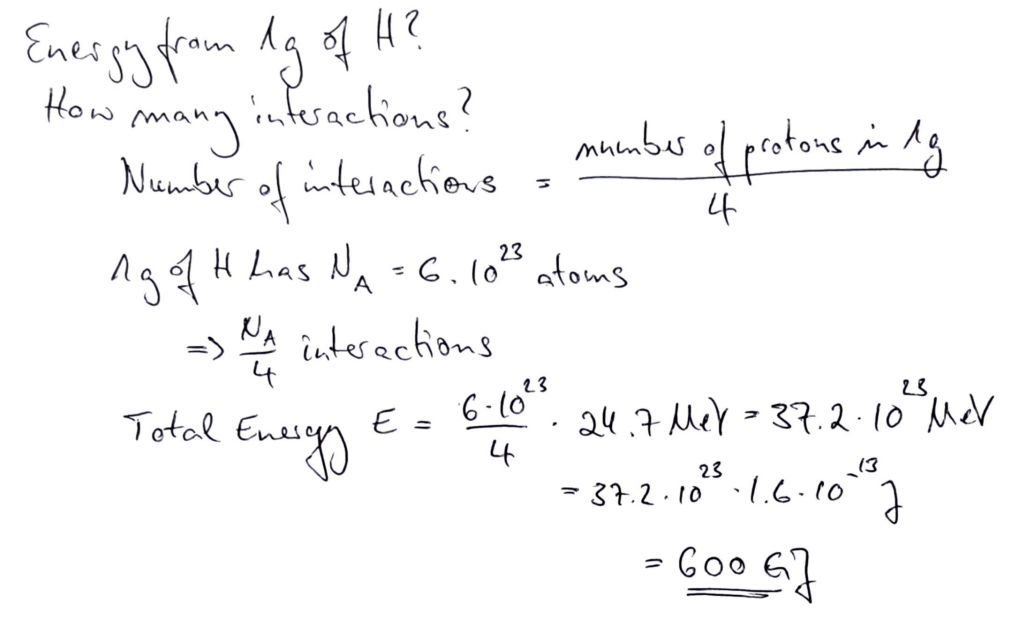 Energy from 1g of H?
How many interactions?
Number of interactions = number of protons in 1g / 4
1g of H has N_A = 6.10^23 atoms
=> N_A/4 interactions
Total Energy E = 6·10^23/4 · 24.7 MeV = 37.2·10^23 MeV
= 37.2·10^23 · 1.6·10^-13 J
= 600 GJ